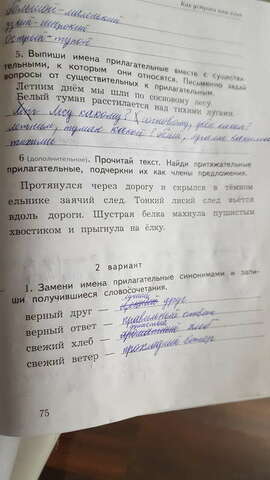 Как устроен наш язык
широкий
острый - тупой
5. Выпиши имена прилагательные вместе с существи-
тельными, к которым они относятся. Письменно задай
вопросы от существительных к прилагательным.
Летним днём мы шли по сосновому лесу.
Белый туман расстилается над тихими лугами.
лесу какому? сосновому, днём каким?
летним, туман какой? белый, лугами какими?
тихими
6 (дополнительное). Прочитай текст. Найди притяжательные
прилагательные, подчерки их как члены предложения.
Протянулся через дорогу и скрылся в тёмном
ельнике заячий след. Тонкий лисий след вьётся
вдоль дороги. Шустрая белка махнула пушистым
хвостиком и прыгнула на ёлку.
2 вариант
1. Замени имена прилагательные синонимами и запи-
ши получившиеся словосочетания.
верный друг — друг
верный ответ — правильный ответ
свежий хлеб — хлеб
свежий ветер — прохладный ветер
75